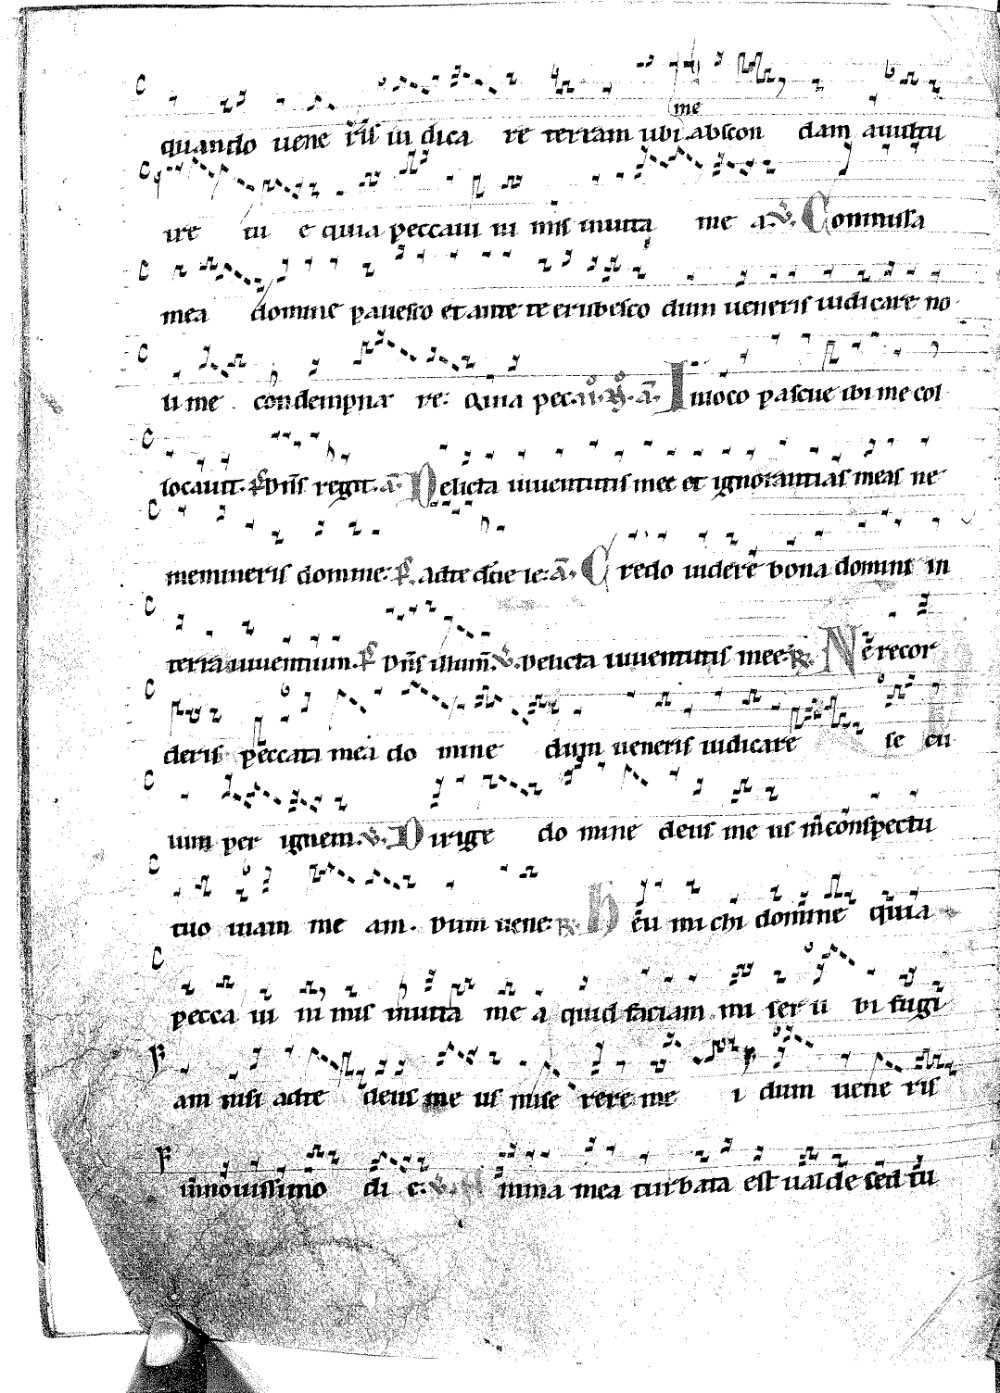 me
quando uene ris iudica re terram ubi abscon dam auultu
ire tu e quia peccaui ni mis in uita me a. V. Commissa
mea domine pauesco et ante te erubesco dum ueneris iudicare no
li me condempnar re: quia pec. In loco pascue ibi me col
locauit. ps. Dns regit. a. Delicta iuuentutis mee et ignorantias meas ne
memineris domine: ps. adte dne le: a. Credo uidere bona domini in
terra uiuentium. ps Dns illum. V. Delicta iuuentutis mee. R. Ne recor
deris peccata mea do mine dum ueneris iudicare se cu
lum per ignem. V. Dirige do mine deus me us in conspectu
tuo uiam me am. Dum uene: R. Heu mi chi domine quia
pecca ui ni mis in uita me a quid faciam mi ser u bi fugi
am nisi adte deus me us mise rere me i dum uene ris
in nouissimo di e: V. Anima mea turbata est ualde sed tu